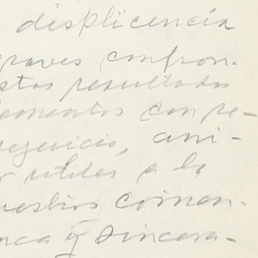 displicencia
graves confron-
stos resultados
lementos con pe-
ani-
r utiles a la
uestros coman-
nca y sincera-